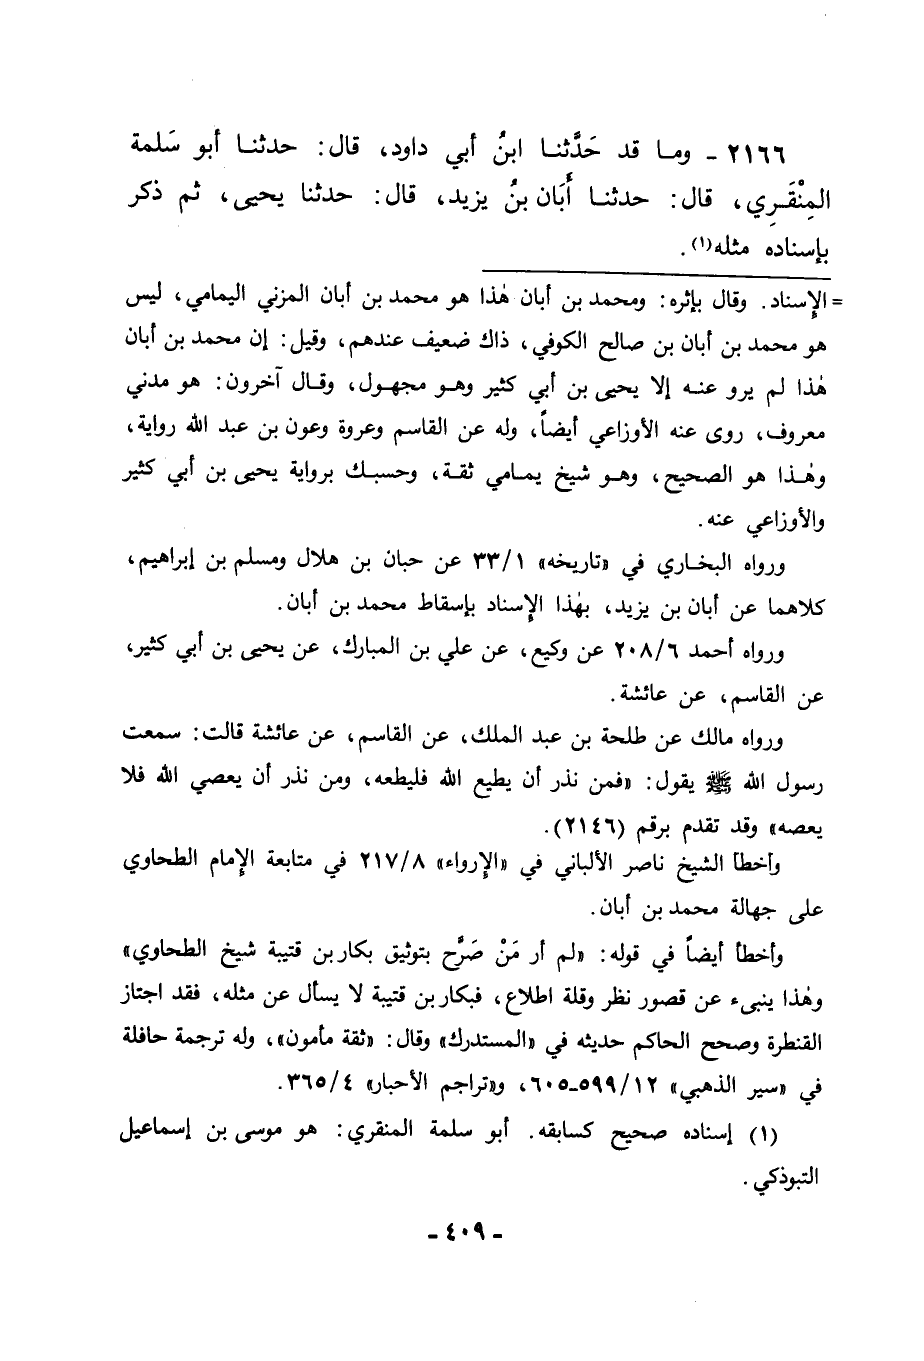 ٢١٦٦ - وما قد حَدَّثنا ابنُ أبي داود، قال: حدثنا أبو سَلمة
المِنْقَرِي، قال: حدثنا أَبَان بنُ يزيد، قال: حدثنا يحيى، ثم ذكر
بإسناده مثله(١).
= الإسناد. وقال بإثره: ومحمد بن أبان هٰذا هو محمد بن أبان المزني اليمامي، ليس
هو محمد بن أبان بن صالح الكوفي، ذاك ضعيف عندهم، وقيل: إن محمد بن أبان
هٰذا لم يرو عنه إلا يحيى بن أبي كثير وهو مجهول، وقال آخرون: هو مدني
معروف، روى عنه الأوزاعي أيضاً، وله عن القاسم وعروة وعون بن عبد الله رواية،
وهٰذا هو الصحيح، وهو شيخ يمامي ثقة، وحسبك برواية يحيى بن أبي كثير
والأوزاعي عنه.
ورواه البخاري في «تاريخه» ٣٣/١ عن حبان بن هلال ومسلم بن إبراهيم،
كلاهما عن أبان بن يزيد، بهٰذا الإسناد بإسقاط محمد بن أبان.
ورواه أحمد ٢٠٨/٦ عن وكيع، عن علي بن المبارك، عن يحيى بن أبي كثير،
عن القاسم، عن عائشة.
ورواه مالك عن طلحة بن عبد الملك، عن القاسم، عن عائشة قالت: سمعت
رسول الله ﷺ يقول: «فمن نذر أن يطيع الله فليطعه، ومن نذر أن يعصي الله فلا
يعصه» وقد تقدم برقم (٢١٤٦).
وأخطأ الشيخ ناصر الألباني في «الإرواء» ٢١٧/٨ في متابعة الإمام الطحاوي
على جهالة محمد بن أبان.
وأخطأ أيضاً في قوله: «لم أر مَنْ صَرَّح بتوثيق بكار بن قتيبة شيخ الطحاوي»
وهٰذا ينبىء عن قصور نظر وقلة اطلاع، فبكار بن قتيبة لا يسأل عن مثله، فقد اجتاز
القنطرة وصحح الحاكم حديثه في «المستدرك» وقال: «ثقة مأمون»، وله ترجمة حافلة
في «سير الذهبي» ٥٩٩/١٢-٦٠٥، و«تراجم الأحبار» ٣٦٥/٤.
(١) إسناده صحيح كسابقه. أبو سلمة المنقري: هو موسى بن إسماعيل
التبوذكي.
- ٤٠٩ -